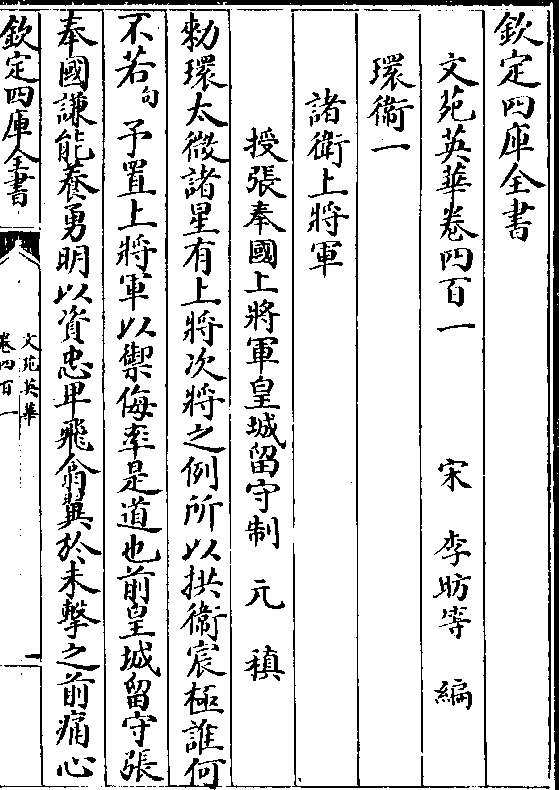 欽定四庫全書
文苑英華卷四百一　宋　李昉等　編
環衛一
諸衛上將軍
授張奉國上將軍皇城留守制　元稹
勅環太微諸星有上將次將之例所以拱衞宸極誰何
不若句予置上將軍以禦侮率是道也前皇城留守張
奉國謙能養勇明以資忠卑飛翕翼於未擊之前痛心
欽定四庫全書
文苑英華
卷四百一